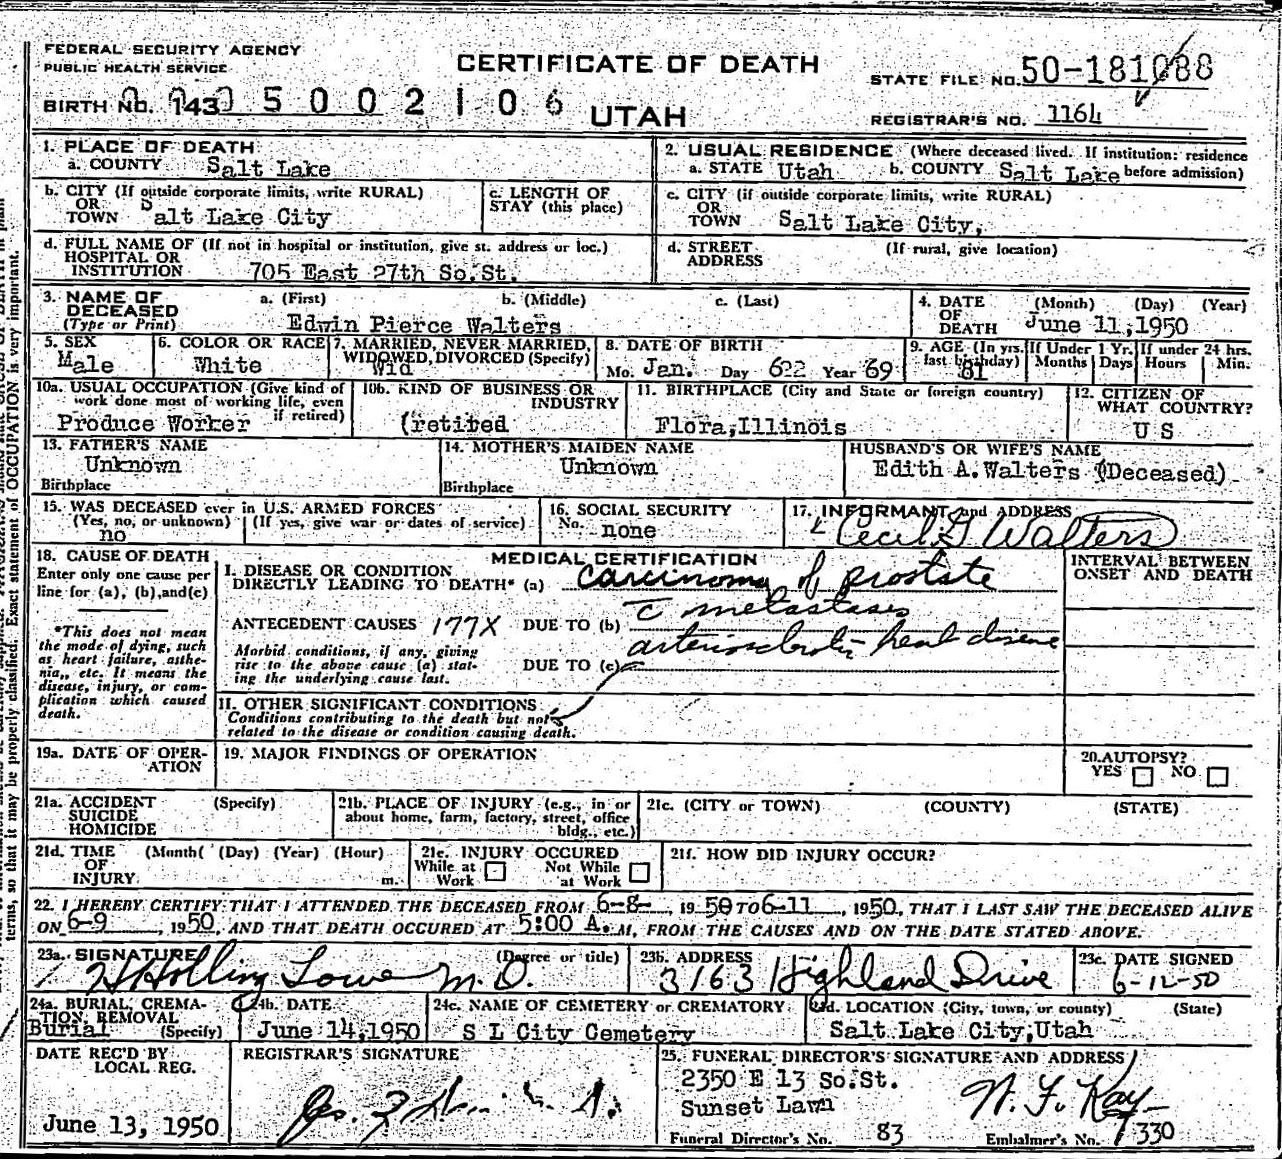 FEDERAL SECURITY AGENCY
PUBLIC HEALTH SERVICE
CERTIFICATE OF DEATH
STATE FILE NO. 50-181088
BIRTH NO. 143 5 0 0 2 1 0 6
UTAH
REGISTRAR'S NO. 1164
1. PLACE OF DEATH
a. COUNTY Salt Lake
2. USUAL RESIDENCE (Where deceased lived. If institution: residence before admission)
a. STATE Utah b. COUNTY Salt Lake
b. CITY (If outside corporate limits, write RURAL)
OR
TOWN Salt Lake City
c. LENGTH OF
STAY (this place)
c. CITY (if outside corporate limits, write RURAL)
OR
TOWN Salt Lake City,
d. FULL NAME OF (If not in hospital or institution, give st. address or loc.)
HOSPITAL OR
INSTITUTION 705 East 27th So.St.
d. STREET (If rural, give location)
ADDRESS
3. NAME OF DECEASED
(Type or Print)
a. (First) b. (Middle) c. (Last)
Edwin Pierce Walters
4. DATE OF DEATH
(Month) (Day) (Year)
June 11,1950
5. SEX
Male
6. COLOR OR RACE
White
7. MARRIED, NEVER MARRIED,
WIDOWED, DIVORCED (Specify)
Wid
8. DATE OF BIRTH
Mo. Jan. Day 622 Year 69
9. AGE (In yrs. last birthday)
81
If Under 1 Yr. Months Days
If under 24 hrs. Hours Min.
10a. USUAL OCCUPATION (Give kind of
work done most of working life, even
if retired)
Produce Worker
10b. KIND OF BUSINESS OR
INDUSTRY
(retited
11. BIRTHPLACE (City and State or foreign country)
Flora,Illinois
12. CITIZEN OF
WHAT COUNTRY?
U S
13. FATHER'S NAME
Unknown
Birthplace
14. MOTHER'S MAIDEN NAME
Unknown
Birthplace
HUSBAND'S OR WIFE'S NAME
Edith A.Walters (Deceased)
15. WAS DECEASED ever in U.S. ARMED FORCES
(Yes, no, or unknown) (If yes, give war or dates of service)
no
16. SOCIAL SECURITY
No. none
17. INFORMANT and ADDRESS
Cecil G Walters
18. CAUSE OF DEATH
Enter only one cause per
line for (a), (b), and(c)
*This does not mean
the mode of dying, such
as heart failure, asthe-
nia,, etc. It means the
disease, injury, or com-
plication which caused
death.
MEDICAL CERTIFICATION
INTERVAL BETWEEN
ONSET AND DEATH
I. DISEASE OR CONDITION
DIRECTLY LEADING TO DEATH* (a) Carcinoma of prostate
c metastases
ANTECEDENT CAUSES 177X DUE TO (b)
arteriosclerotic heart disease
Morbid conditions, if any, giving
rise to the above cause (a) stat-
ing the underlying cause last.
DUE TO (c)
II. OTHER SIGNIFICANT CONDITIONS
Conditions contributing to the death but not
related to the disease or condition causing death.
19a. DATE OF OPER-
ATION
19. MAJOR FINDINGS OF OPERATION
20.AUTOPSY?
YES NO
21a. ACCIDENT (Specify)
SUICIDE
HOMICIDE
21b. PLACE OF INJURY (e.g., in or
about home, farm, factory, street, office
bldg., etc.)
21c. (CITY or TOWN) (COUNTY) (STATE)
21d. TIME (Month( (Day) (Year) (Hour)
OF
INJURY m.
21e. INJURY OCCURED
While at Work Not While at Work
21f. HOW DID INJURY OCCUR?
22. I HEREBY CERTIFY THAT I ATTENDED THE DECEASED FROM 6-8-, 1950 TO 6-11, 1950, THAT I LAST SAW THE DECEASED ALIVE
ON 6-9, 1950, AND THAT DEATH OCCURED AT 5:00 A. M, FROM THE CAUSES AND ON THE DATE STATED ABOVE.
23a. SIGNATURE (Degree or title)
H Holling Lowe M.D.
23b. ADDRESS
3163 Highland Drive
23c. DATE SIGNED
6-12-50
24a. BURIAL, CREMA-
TION, REMOVAL
(Specify)
Burial
24b. DATE
June 14,1950
24c. NAME OF CEMETERY or CREMATORY
S L City Cemetery
24d. LOCATION (City, town, or county) (State)
Salt Lake City,Utah
DATE REC'D BY
LOCAL REG.
June 13, 1950
REGISTRAR'S SIGNATURE
25. FUNERAL DIRECTOR'S SIGNATURE AND ADDRESS
2350 E 13 So.St.
Sunset Lawn
W. F. Kay
Funeral Director's No. 83
Embalmer's No. 330
terms, so that it may be properly classified. Exact statement of OCCUPATION is very important.